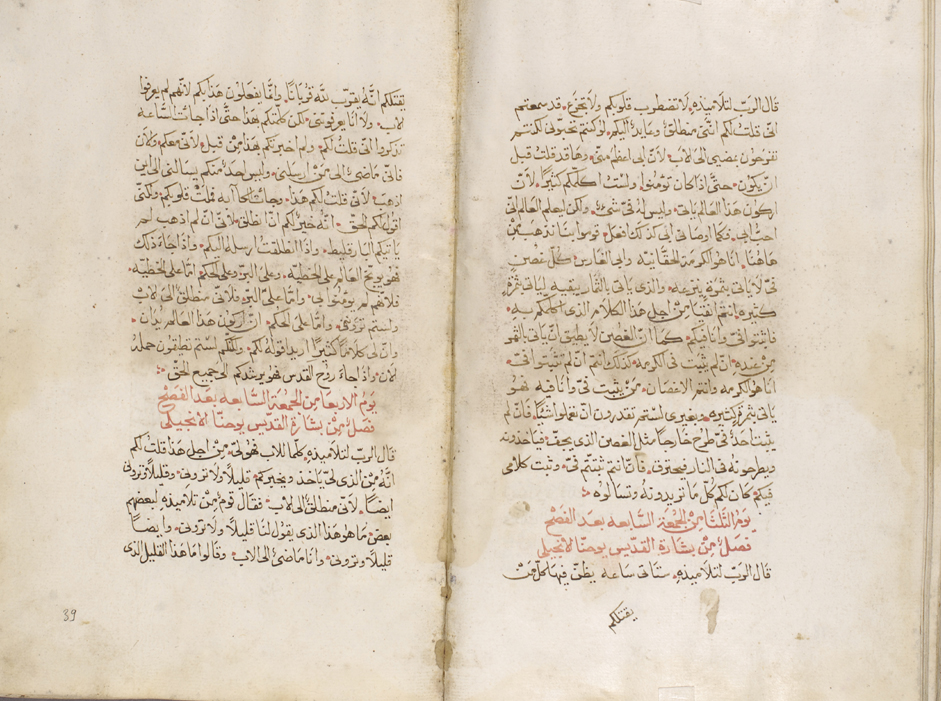 قال الربّ لتلاميذه لا تضطرب قلوبكم ولا تجزع قد سمعتم
انّي قلت لكم انّني منطلق وعايد اليكم لو كنتم تحبّوني لكنتم
تفرحون بمضيي الى الاب لانّ ابي اعظم منّي وها قد قلت قبل
ان يكون حتّى اذا كان تومنوا ولست اكلّمكم كثيراً لانّ
اركون هذا العالم ياتي وليس له فيّ شيء ولكن ليعلم العالم انّي
احبّ ابي وكما اوصاني ابي كذلك افعل قوموا بنا نذهب من
هاهنا انا هو الكرمة الحقّانية وابي الغارس كلّ غصن
فيّ لا ياتي بثمرة ينزعه والذي ياتي بالثمار ينقيه لياتي بثمرة
كثيرة انتم انقيا من اجل هذا الكلام الذي اكلّمكم به
فاثبتوا فيّ وانا فيكم كما انّ الغصن لا يطيق ان ياتي بالثمر
من عنده ان لم يثبت في الكرمة كذلك انتم ان لم تثبتوا فيّ
انا هو الكرمة وانتم الاغصان من يثبت فيّ وانا فيه فهو
ياتي بثمرة كثيرة بغيري لستم تقدرون ان تعملوا شياً فان لم
يثبت احد فيّ طرح خارجاً مثل الغصن الذي يجفّ فياخذونه
ويطرحونه في النار فيحترق فان انتم ثبتّم فيّ وثبت كلامي
فيكم كان لكم كلّ ما تريدونه وتسالوه
يوم الثلثا من الجمعة السابعة بعد الفصح
فصل من بشارة القديس يوحنّا الانجيلي
قال الربّ لتلاميذه ستاتي ساعة يظنّ فيها كلّ من
يقتلكم
يقتلكم انّه يقرّب للّه قرباناً وانّما يفعلون هذا بكم لانّهم لم يعرفوا
لاب ولا انا يعرفونني لكن كلّمتكم بهذا حتّى اذا جات السّاعة
تذكروا انّي قلت لكم ولم اخبركم بهذا من قبل لانّي معكم والان
فانّي ماضي الى من ارسلني وليس احد منكم يسالني الى اين
اذهب لانّي قلت لكم هذا وجات الكابه فملت قلوبكم ولكنّي
اقول لكم الحقّ انّه خير لكم ان انطلق لانّي ان لم اذهب لم
ياتيكم البارقليط واذا انطلقت ارسله اليكم واذا جا ذاك
فهو يوبخ العالم على الخطيّة وعلى البرّ وعلى الحكم امّا على الخطيّة
فلانّهم لم يومنوا بي وامّا على البرّ فلانّي منطلق الى الاب
ولستم تروني وامّا على الحكم انّ اركون هذا العالم يدان
وانّ لي كلاماً كثيراً اريد اقوله لكم ولكنّكم لستم تطيقون حمله
لان واذا جا روح القدس فهو يرشدكم الى جميع الحقّ
يوم الاربعا من الجمعة السّابعة بعد الفصح
فصل من بشارة القديس يوحنّا الانجيلي
قال الربّ لتلاميذه كلّما للاب فهو لي من اجل هذا قلت لكم
انّه من الذي لي ياخذ ويخبركم قليلاً ولا تروني وقليلاً وتروني
ايضاً لانّي منطلق الى الاب فقال قوم من تلاميذه لبعضهم
بعض ما هو هذا الذي يقول لنا قليلاً ولا تروني وايضاً
قليلاً وتروني وانا ماضي الى الاب وقالوا ما هذا القليل الذي
39